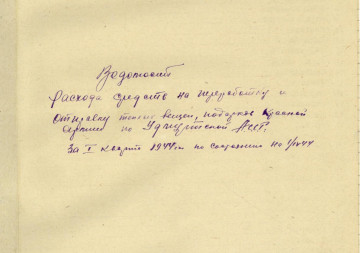 Ведомость
Расхода средств на переработку и
отправку теплых вещей, подарков Красной
армии по Удмуртской АССР.
За I квартал 1944 г. по состоянию на 1/IV-44